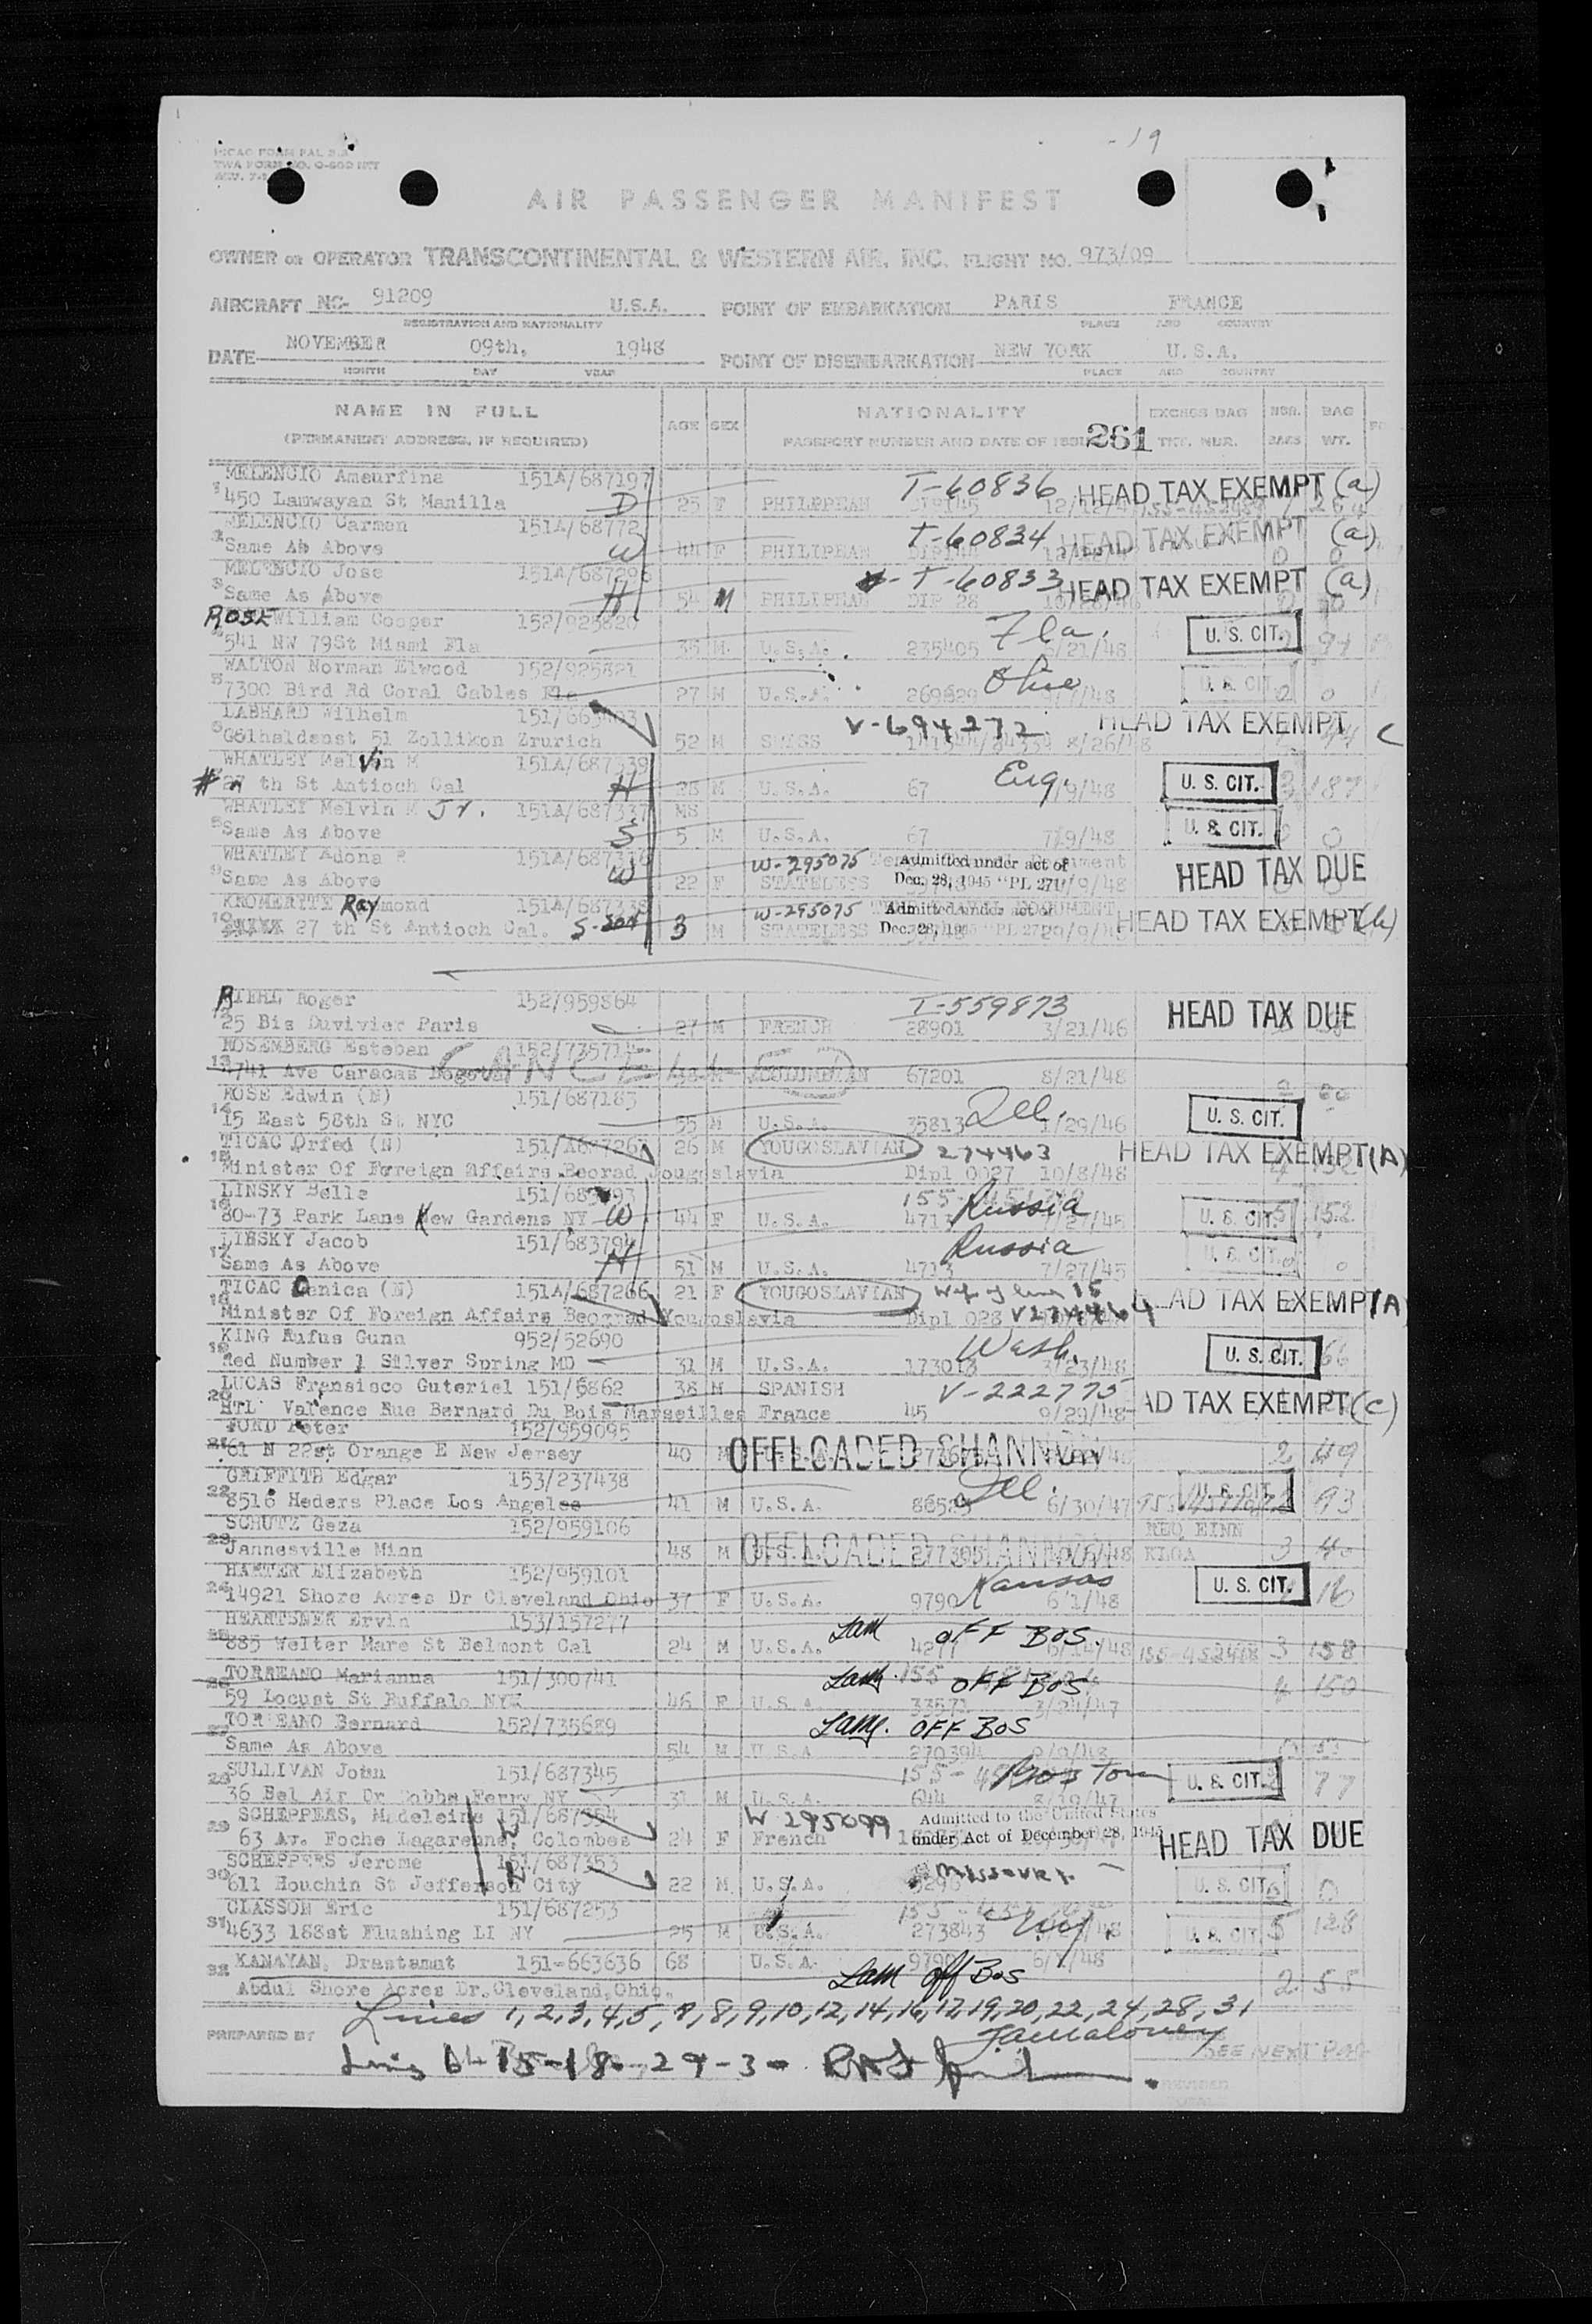 -19
ICAO FORM PAL
TWA FORM NO. O-600 NYT
REV. 7-
AIR PASSENGER MANIFEST
OWNER or OPERATOR TRANSCONTINENTAL & WESTERN AIR, INC. FLIGHT NO. 973/09
AIRCRAFT NC- 91209 U.S.A. POINT OF EMBARKATION PARIS FRANCE
REGISTRATION AND NATIONALITY PLACE AND COUNTRY
DATE NOVEMBER 09th, 1948 POINT OF DISEMBARKATION NEW YORK U.S.A.
MONTH DAY YEAR PLACE AND COUNTRY
NAME IN FULL AGE SEX NATIONALITY EXCESS BAG NBR. BAG
(PERMANENT ADDRESS, IF REQUIRED) PASSPORT NUMBER AND DATE OF ISSUE 261 TKT. NBR. BAGS WT.
MELENCIO Ameurfina 151A/687197 T-60836 HEAD TAX EXEMPT (a)
1 450 Lamwayan St Manilla D 25 F PHILPPEAN
MELENCIO Carmen 151A/68772 T-60834 HEAD TAX EXEMPT (a)
2 Same As Above W 44 F PHILIPEAN
MELENCIO Jose 151A/687296 T-60833 HEAD TAX EXEMPT (a)
3 Same As Above H 54 M PHILIPEAN DIP 28
ROSE William Cooper 152/925820 Fla. U.S. CIT.
541 NW 79St Miami Fla 36 M U.S.A. 235405 /21/48 94
WALTON Norman Elwood 152/925821 Ohio U.S. CIT.
5 7300 Bird Rd Coral Cables Fla 27 M U.S.A. 269629 /48 2 0
LABHARD Wilhelm 151/663403 V-694272 HEAD TAX EXEMPT C
6 Goihaldenst 51 Zollikon Zrurich 52 M SWISS 8/26/48
WHATLEY Melvin M 151A/687339 Eng. U.S. CIT.
# 27 th St Antioch Cal H 28 M U.S.A. 67 /9/48 3 187
WHATLEY Melvin M Jr. 151A/687337 MS U.S. CIT.
8 Same As Above S 5 M U.S.A. 67 7/9/48 0 0
WHATLEY Adona R 151A/687336 W-295075 Admitted under act of HEAD TAX DUE
9 Same As Above W 22 F STATELESS Dec. 28, 1945 "PL 271" /9/48
KROMERITE Raymond 151A/687338 W-295075 Admitted under act of HEAD TAX EXEMPT (b)
10 27 th St Antioch Cal. S-son 3 M STATELESS Dec. 28, 1945 "PL 271"
RIEHL Roger 152/959864 I-559873 HEAD TAX DUE
12 25 Bis Duvivier Paris 27 M FRENCH 28901 3/21/46
ROSEMBERG Esteban 152/735714 CANCELLED
13 4741 Ave Caracas Bogota 48 M COLUMBIAN 67201 8/21/48
ROSE Edwin (N) 151/687183 Ill. U.S. CIT.
14 15 East 58th St NYC 55 M U.S.A. 35813 1/29/46
TICAC Orfed (N) 151/A687265 26 M YOUGOSLAVIAN 274463 HEAD TAX EXEMPT (A)
15 Minister Of Foreign Affairs Beorad Yougoslavia Dipl 0027 10/8/48
LINSKY Belle 151/683793 Russia U.S. CIT.
16 80-73 Park Lane Kew Gardens NY W 44 F U.S.A. 4713 7/27/45 5 152
LINSKY Jacob 151/683794 Russia U.S. CIT.
17 Same As Above H 51 M U.S.A. 4713 7/27/45 0 0
TICAC Danica (N) 151A/687266 21 F YOUGOSLAVIAN Wife of line 15 HEAD TAX EXEMPT (A)
18 Minister Of Foreign Affairs Beograd Yougoslavia Dipl 028 V274464
KING Rufus Gunn 952/52690 Wash. U.S. CIT.
19 Red Number 1 Silver Spring MD 31 M U.S.A. 173018 3/23/48 66
LUCAS Fransisco Guteriel 151/6862 38 M SPANISH V-222775 HEAD TAX EXEMPT (C)
20 HTL Valence Rue Bernard Du Bois Marseilles France 45 9/29/48
FORD Peter 152/959095
21 61 N 22st Orange E New Jersey 40 M OFFLOADED SHANNON 2 49
GRIFFITH Edgar 153/237438 Ill. U.S. CIT.
22 8516 Heders Place Los Angeles 41 M U.S.A. 86523 6/30/47 93
SCHUTZ Geza 152/959106
23 Jannesville Minn 48 M U.S.A. OFFLOADED SHANNON 3 40
HARTER Elizabeth 152/959101 Kansas U.S. CIT.
24 14921 Shore Acres Dr Cleveland Ohio 37 F U.S.A. 9790 6/1/48 16
HEARTSNER Ervin 153/157277 Jam OFF BOS.
25 885 Welter Mare St Belmont Cal 24 M U.S.A. 4277 6/14/48 155-452468 3 158
TORREANO Marianna 151/300741 Jam OFF BOS.
26 59 Locust St Buffalo NY 46 F U.S.A. 33571 3/24/47 4 150
TORREANO Bernard 152/735689 Jam. OFF BOS
27 Same As Above 54 M U.S.A 270394
SULLIVAN John 151/687345 Boston U.S. CIT.
28 36 Bel Air Dr Dobbs Ferry NY 31 M U.S.A. 644 8/19/47 77
SCHEPPERS, Madeleine 151/687354 W 295099 Admitted to the United States HEAD TAX DUE
29 63 Av. Foche Lagarenne, Colombes W 24 F French under Act of December 28, 1945
SCHEPPERS Jerome 151/687353 Missouri U.S. CIT.
30 611 Houchin St Jefferson City H 22 M U.S.A. 0
CLASSON Eric 151/687253 U.S. CIT.
31 4633 188st Flushing LI NY 25 M U.S.A. 273843 5 128
KANAYAN, Drastamut 151-663636 68 U.S.A. 9790 6/1/48
32 Abdul Shore Acres Dr. Cleveland, Ohio. Jam off Bos 2 55
Lines 1,2,3,4,5,7,8,9,10,12,14,16,17,19,20,22,24,28,31
PREPARED BY JaMaloney
SEE NEXT PAGE
15-18-29-30